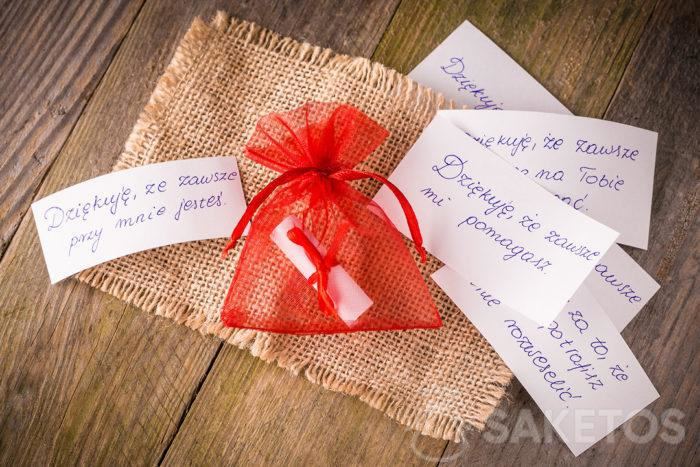 Dziękuję, że zawsze
przy mnie jesteś.
Dziękuję
że zawsze
na Tobie
Dziękuję, że zawsze
mi pomagasz.
zawsze
za to, że
potrafisz
rozweselić!
SAKETOS